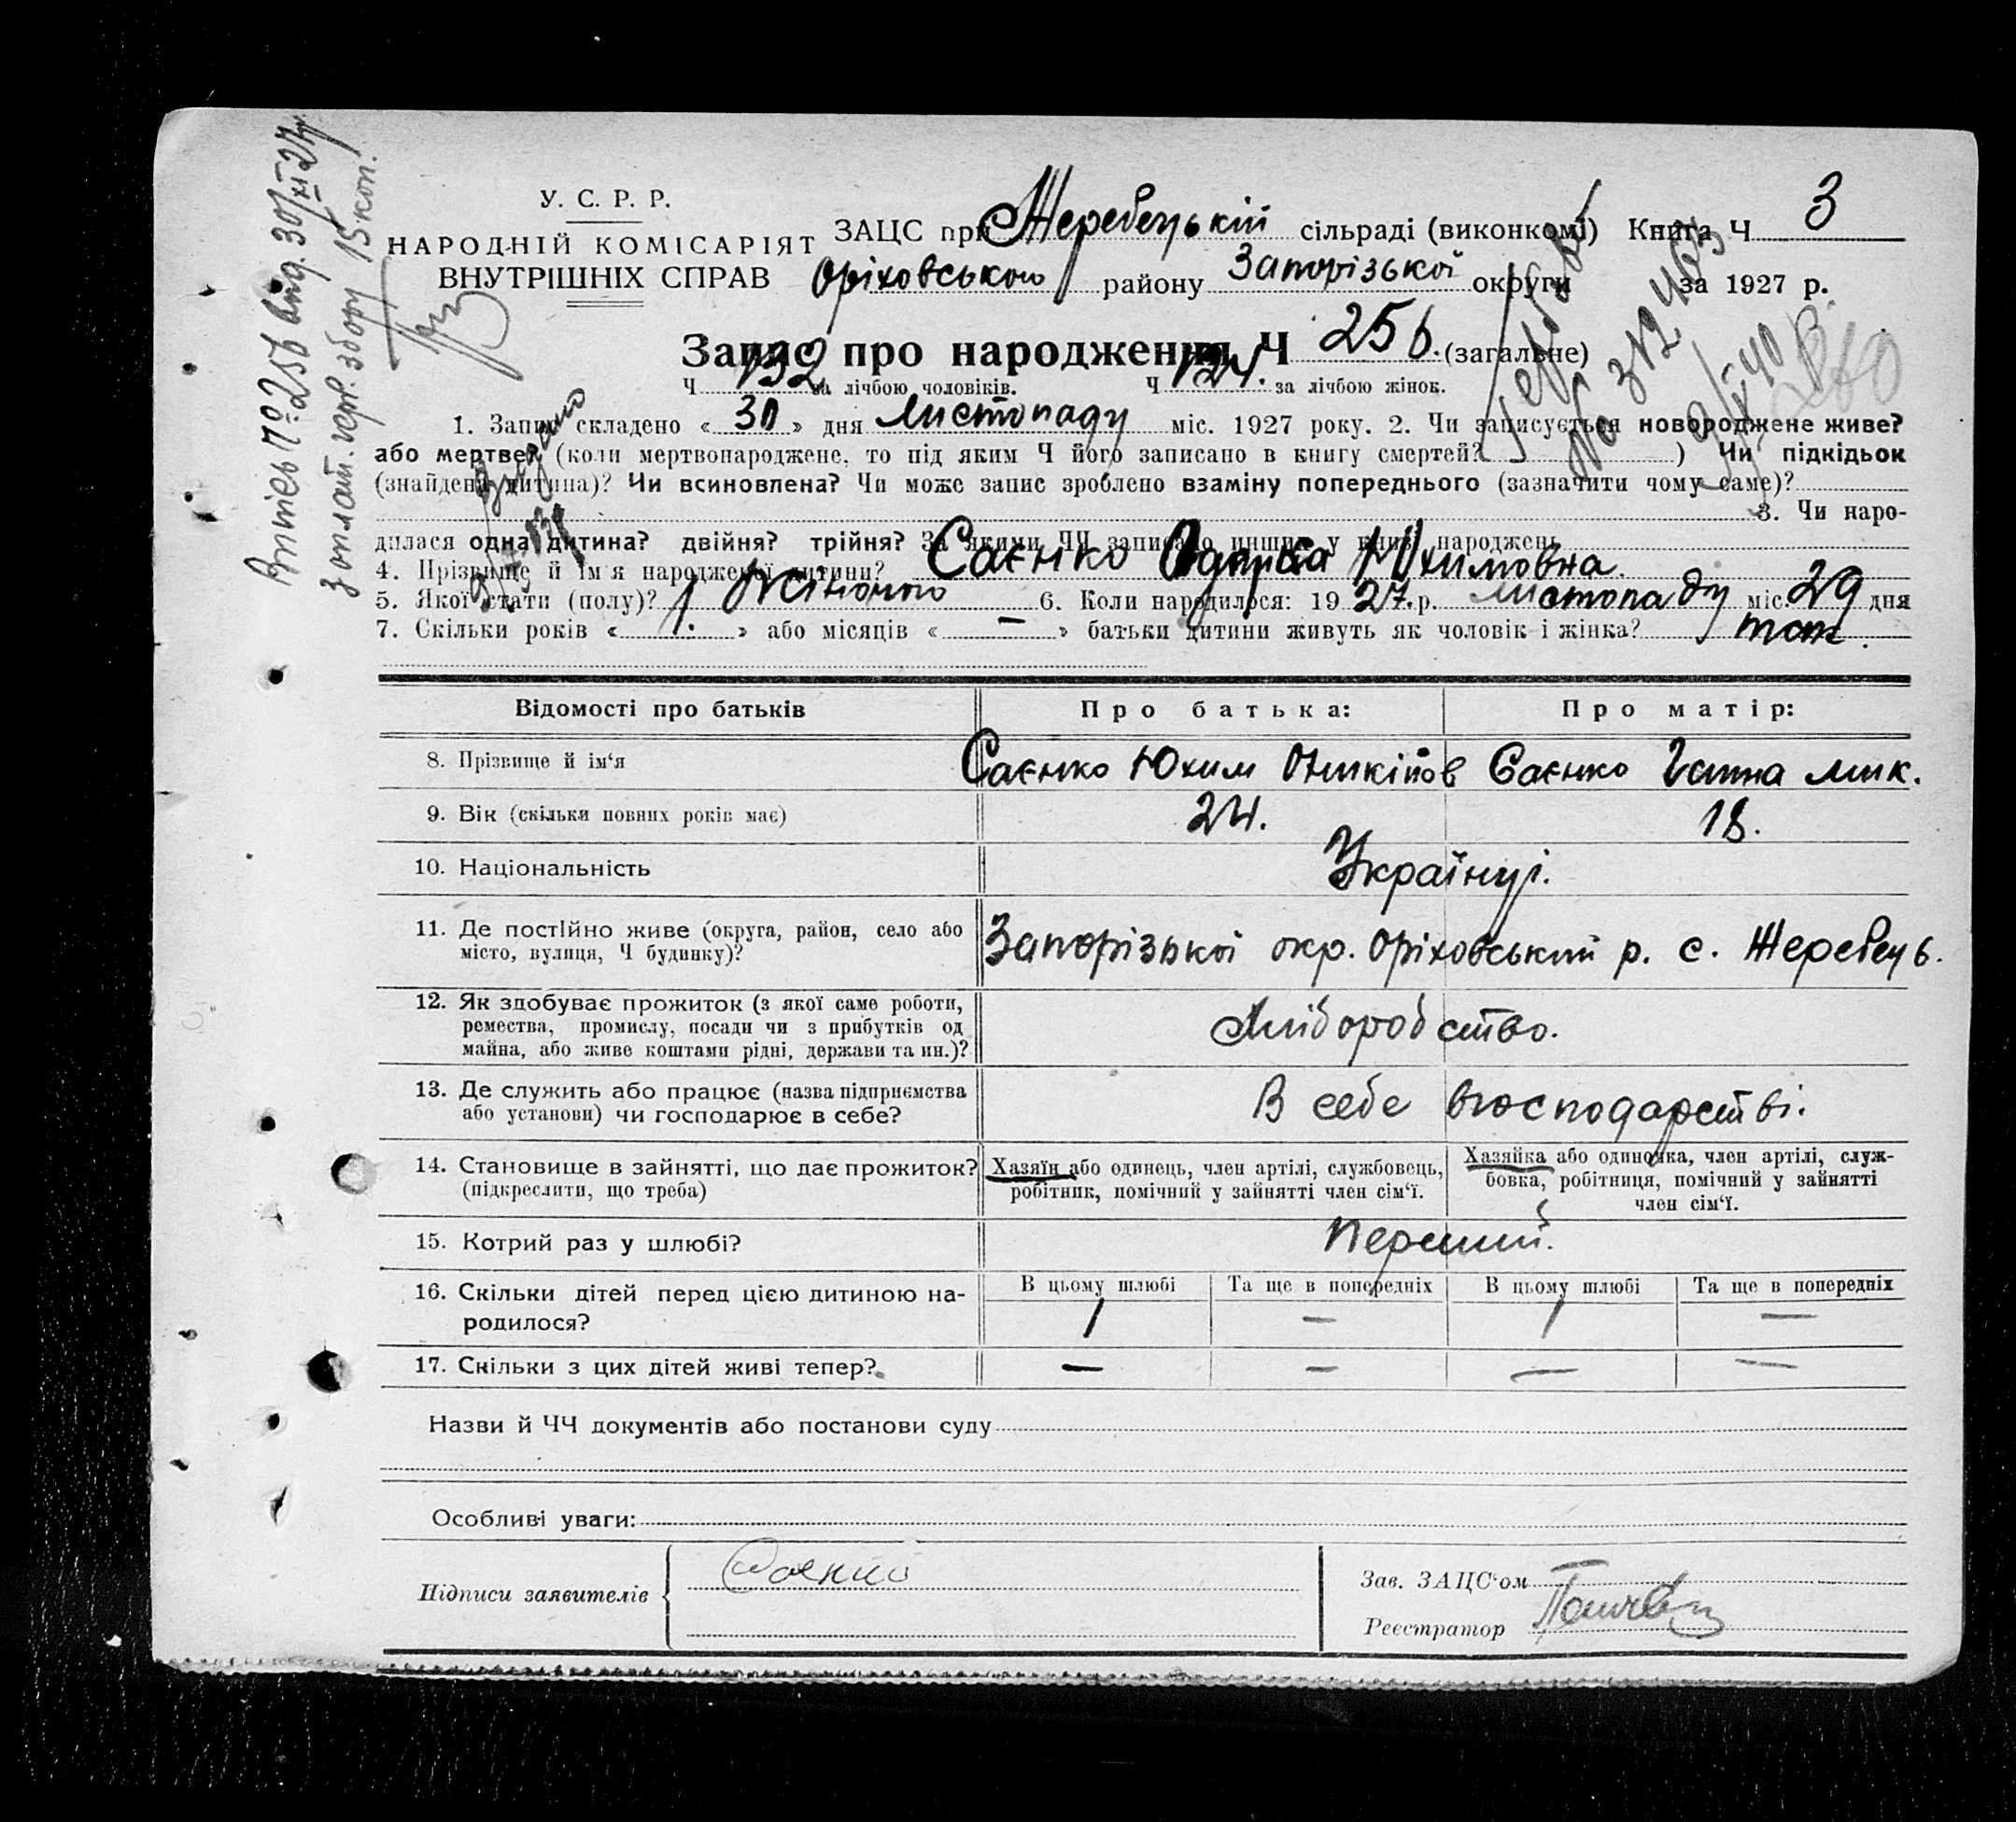 Витяг № 256 від. 30/XI 27 р.
з оплат. герб. збору 15 коп.
У. С. Р. Р.
НАРОДНІЙ КОМІСАРІЯТ
ВНУТРІШНІХ СПРАВ
ЗАЦС при Жеребецькій сільраді (виконкомі) Книга Ч 3
Оріховського району Запорізької округи за 1927 р.
Запис про народження Ч 256. (загальне)
Ч 132 за лічбою чоловіків. Ч 124. за лічбою жінок.
№ 312463
1. Запис складено « 30 » дня листопаду міс. 1927 року. 2. Чи записується новороджене живе?
або мертве? (коли мертвонароджене, то під яким Ч його записано в книгу смертей? ) Чи підкідьок
(знайдена дитина)? Чи всиновлена? Чи може запис зроблено взаміну попереднього (зазначити чому саме)?
3. Чи наро-
дилася одна дитина? двійня? трійня? За якими ЧЧ записано инших у книзі народжень
4. Прізвище й ім'я народженої дитини? Саєнко Юхимовна.
5. Якої стати (полу)? Жіночою 6. Коли народилося: 19 27. р. листопаду міс. 29 дня
7. Скільки років « 1. » або місяців « — » батьки дитини живуть як чоловік і жінка? так.
Відомості про батьків Про батька: Про матір:
8. Прізвище й ім'я Саєнко Юхим Оникійов Саєнко Ганна мик.
9. Вік (скільки повних років має) 24. 18.
10. Національність Українці.
11. Де постійно живе (округа, район, село або
місто, вулиця, Ч будинку)? Запорізької окр. Оріховський р. с. Жеребець.
12. Як здобуває прожиток (з якої саме роботи,
ремества, промислу, посади чи з прибутків од
майна, або живе коштами рідні, держави та ин.)? Хліборобство.
13. Де служить або працює (назва підприємства
або установи) чи господарює в себе? В себе вгосподарстві.
14. Становище в зайнятті, що дає прожиток?
(підкреслити, що треба)
Хазяїн або одинець, член артілі, службовець,
робітник, помічний у зайнятті член сім'ї.
Хазяйка або одиночка, член артілі, служ-
бовка, робітниця, помічний у зайнятті
член сім'ї.
15. Котрий раз у шлюбі? Перший.
16. Скільки дітей перед цією дитиною на-
родилося?
В цьому шлюбі Та ще в попередніх В цьому шлюбі Та ще в попередніх
1 — 1 —
17. Скільки з цих дітей живі тепер? — — — —
Назви й ЧЧ документів або постанови суду
Особливі уваги:
Підписи заявителів Саенко
Зав. ЗАЦС'ом
Реєстратор